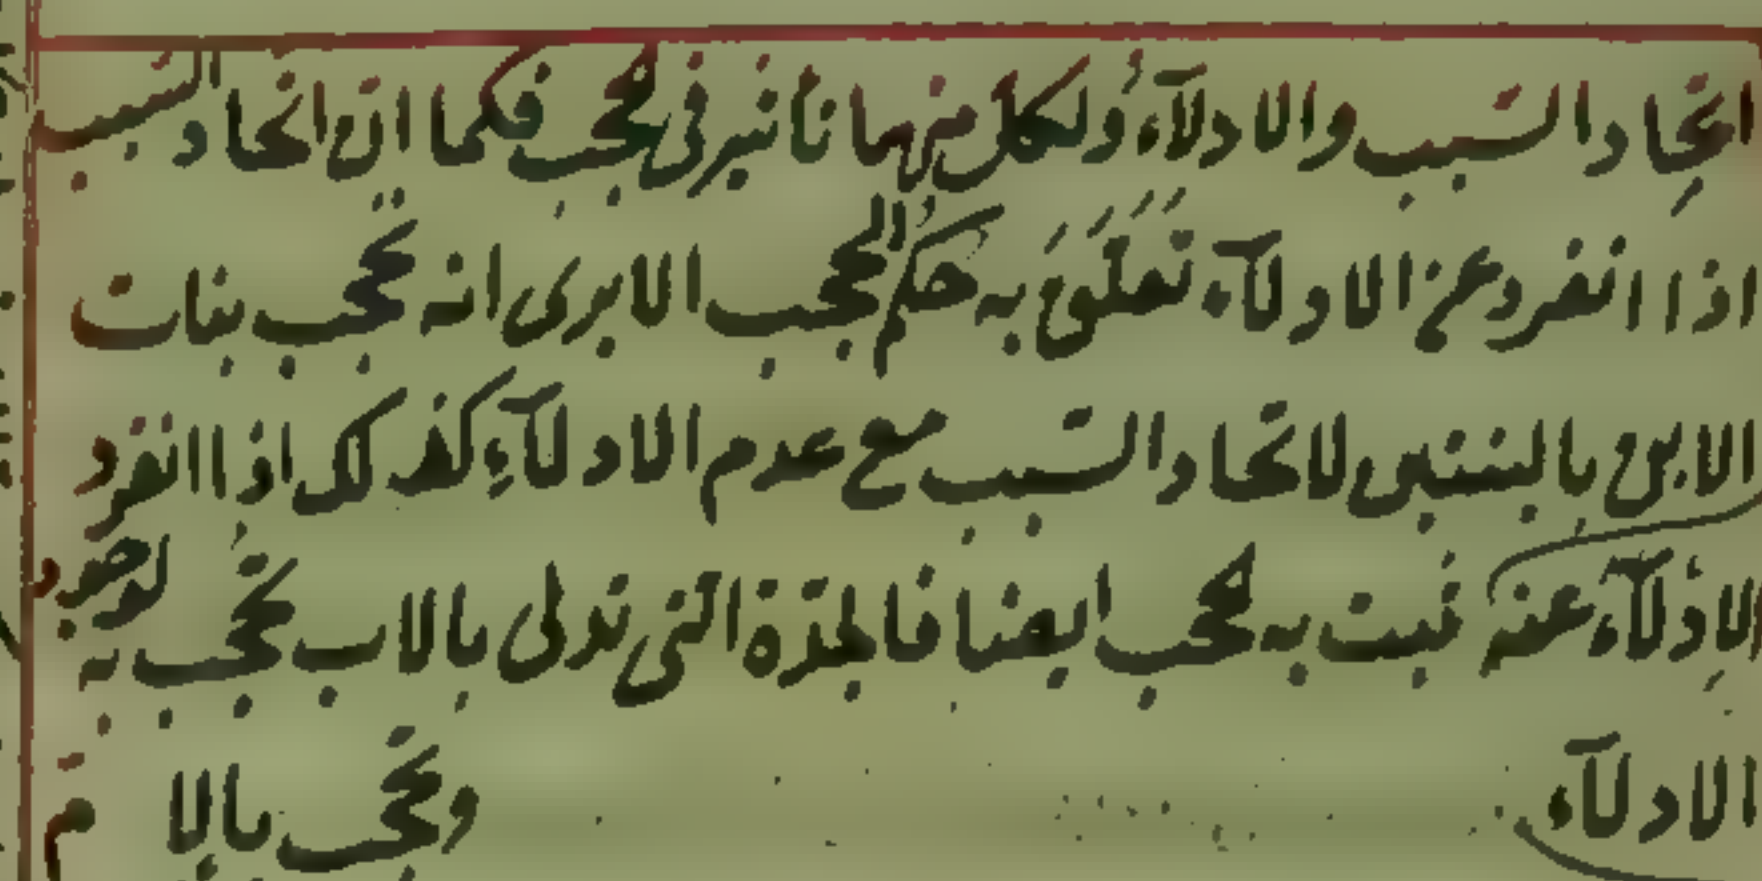 اتحاد السبب والادلآء ولكل منهما تأثير فى لحجب فكما ان اتحاد السبب
اذا انفرد عن الادلآء تعلق به حكم الحجب الا يرى انه تحجب بنات
الابن بالبنتين لاتحاد السبب مع عدم الادلآء كذلك اذا انفرد
الادلآء عنه ثبت به لحجب ايضا فالجدّة التى تدلى بالاب تحجب به لوجود
الادلآء وتحجب بالام